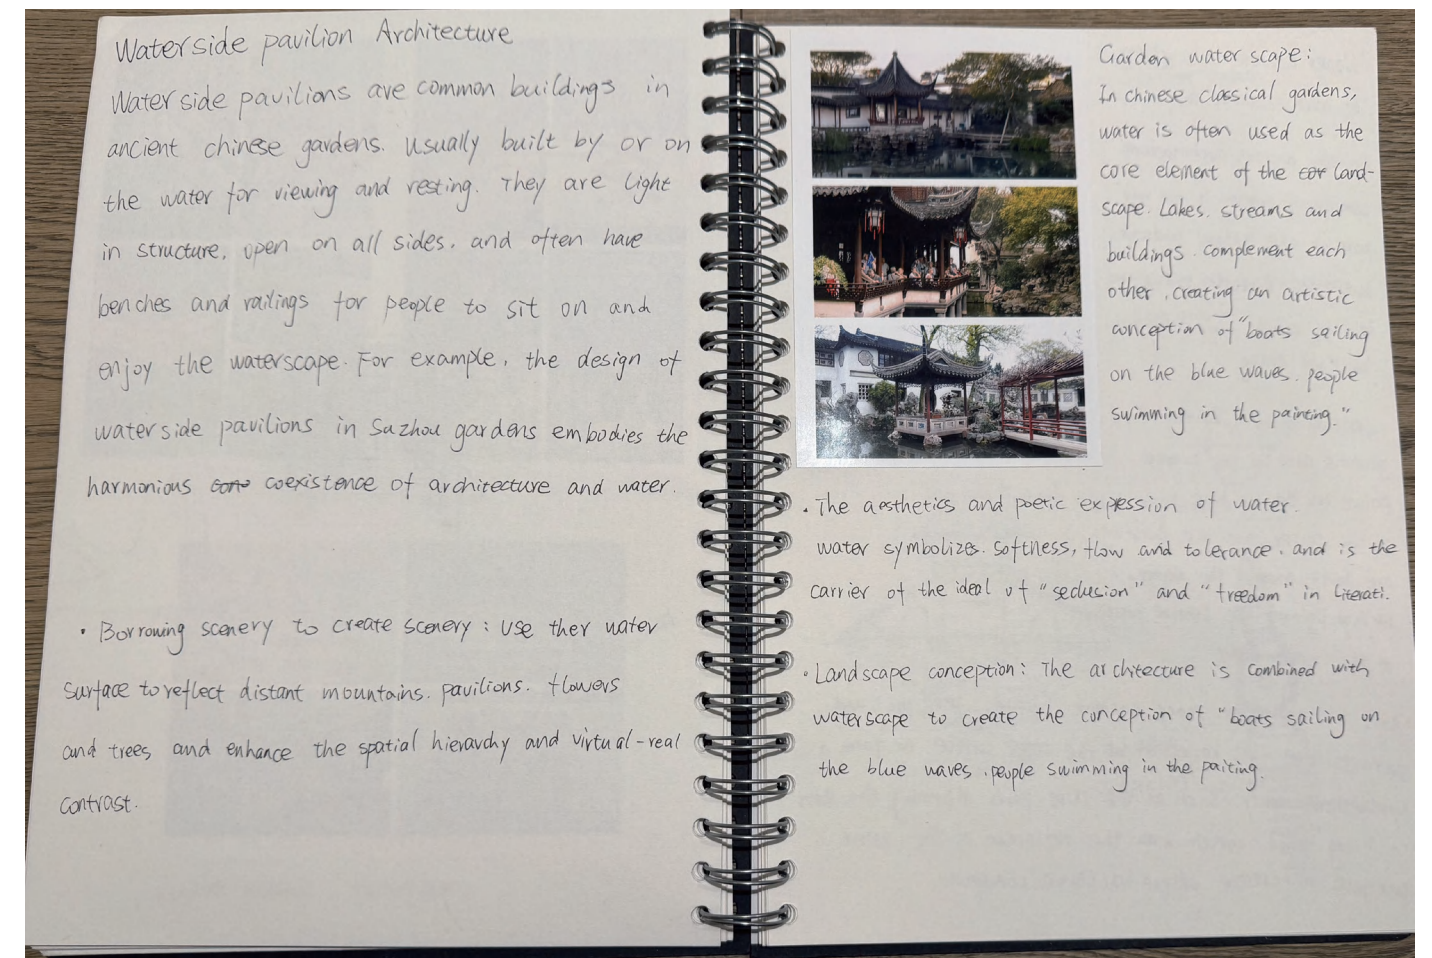 Waterside pavilion Architecture
Waterside pavilions are common buildings in
ancient chinese gardens. usually built by or on
the water for viewing and resting. They are light
in structure, open on all sides, and often have
benches and railings for people to sit on and
enjoy the waterscape. For example, the design of
waterside pavilions in Suzhou gardens embodies the
harmonious coexistence of architecture and water.
· Borrowing scenery to create scenery : use ther water
surface to reflect distant mountains. pavilions. flowers
and trees, and enhance the spatial hierarchy and virtual-real
contrast.
Garden waterscape:
In chinese classical gardens,
water is often used as the
core element of the land-
scape. Lakes. streams and
buildings. complement each
other, creating an artistic
conception of "boats sailing
on the blue waves. people
swimming in the painting."
· The aesthetics and poetic expression of water.
water symbolizes. softness, flow and tolerance. and is the
carrier of the ideal of "seclusion" and "freedom" in literati.
· Landscape conception: The architecture is combined with
waterscape to create the conception of "boats sailing on
the blue waves, people swimming in the paiting.